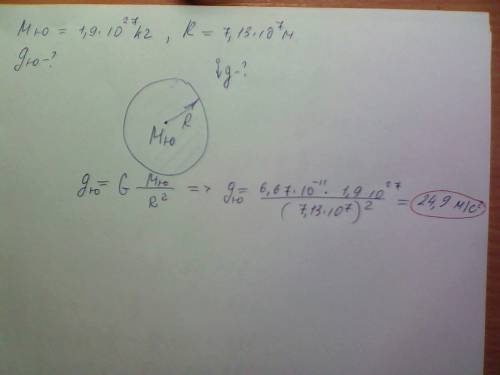 Mю = 1,9·10²⁷ kг, R = 7,13·10⁷ м
gю-?
↓g-?
R
Mю
gю = G Mю / R² => gю = 6,67·10⁻¹¹ · 1,9·10²⁷ / (7,13·10⁷)² = 24,9 м/с²